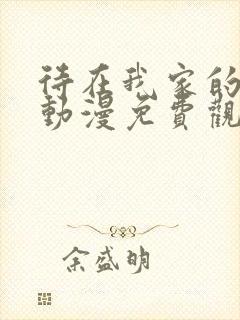 待在我家的
動漫免費觀
余盛明